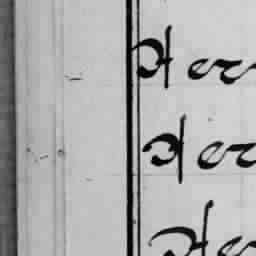 Her
Her
He